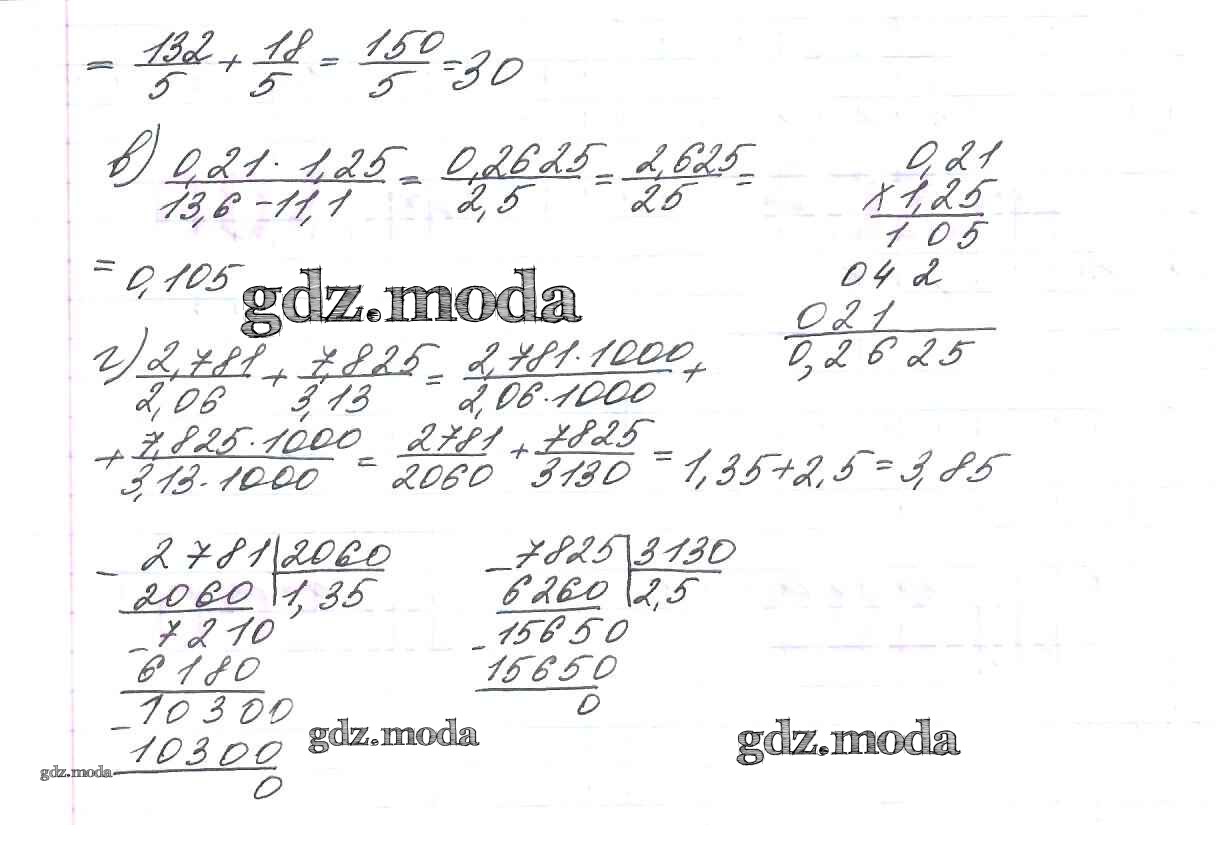 = 132/5 + 18/5 = 150/5 = 30
в) 0,21 · 1,25 / 13,6 – 11,1 = 0,2625 / 2,5 = 2,625 / 25 =
= 0,105
gdz.moda
0,21
× 1,25
1 05
04 2
021
0,2625
г) 2,781 / 2,06 + 7,825 / 3,13 = 2,781 · 1000 / 2,06 · 1000 +
+ 7,825 · 1000 / 3,13 · 1000 = 2781 / 2060 + 7825 / 3130 = 1,35 + 2,5 = 3,85
– 2781 | 2060
2060 | 1,35
– 7210
6180
– 10300
10300
0
– 7825 | 3130
6260 | 2,5
– 15650
15650
0
gdz.moda
gdz.moda
gdz.moda